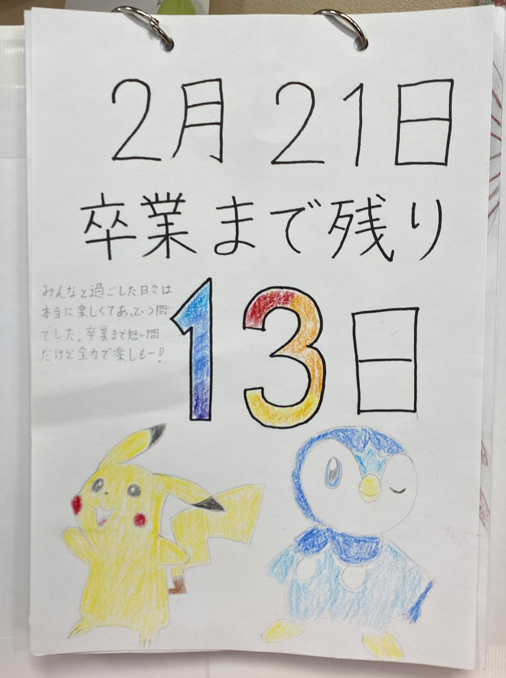 2月 21日
卒業まで残り
13日
みんなと過ごした日々は
本当に楽しくてあっという間
でした。卒業まで短い間
だけど全力で楽しもー!